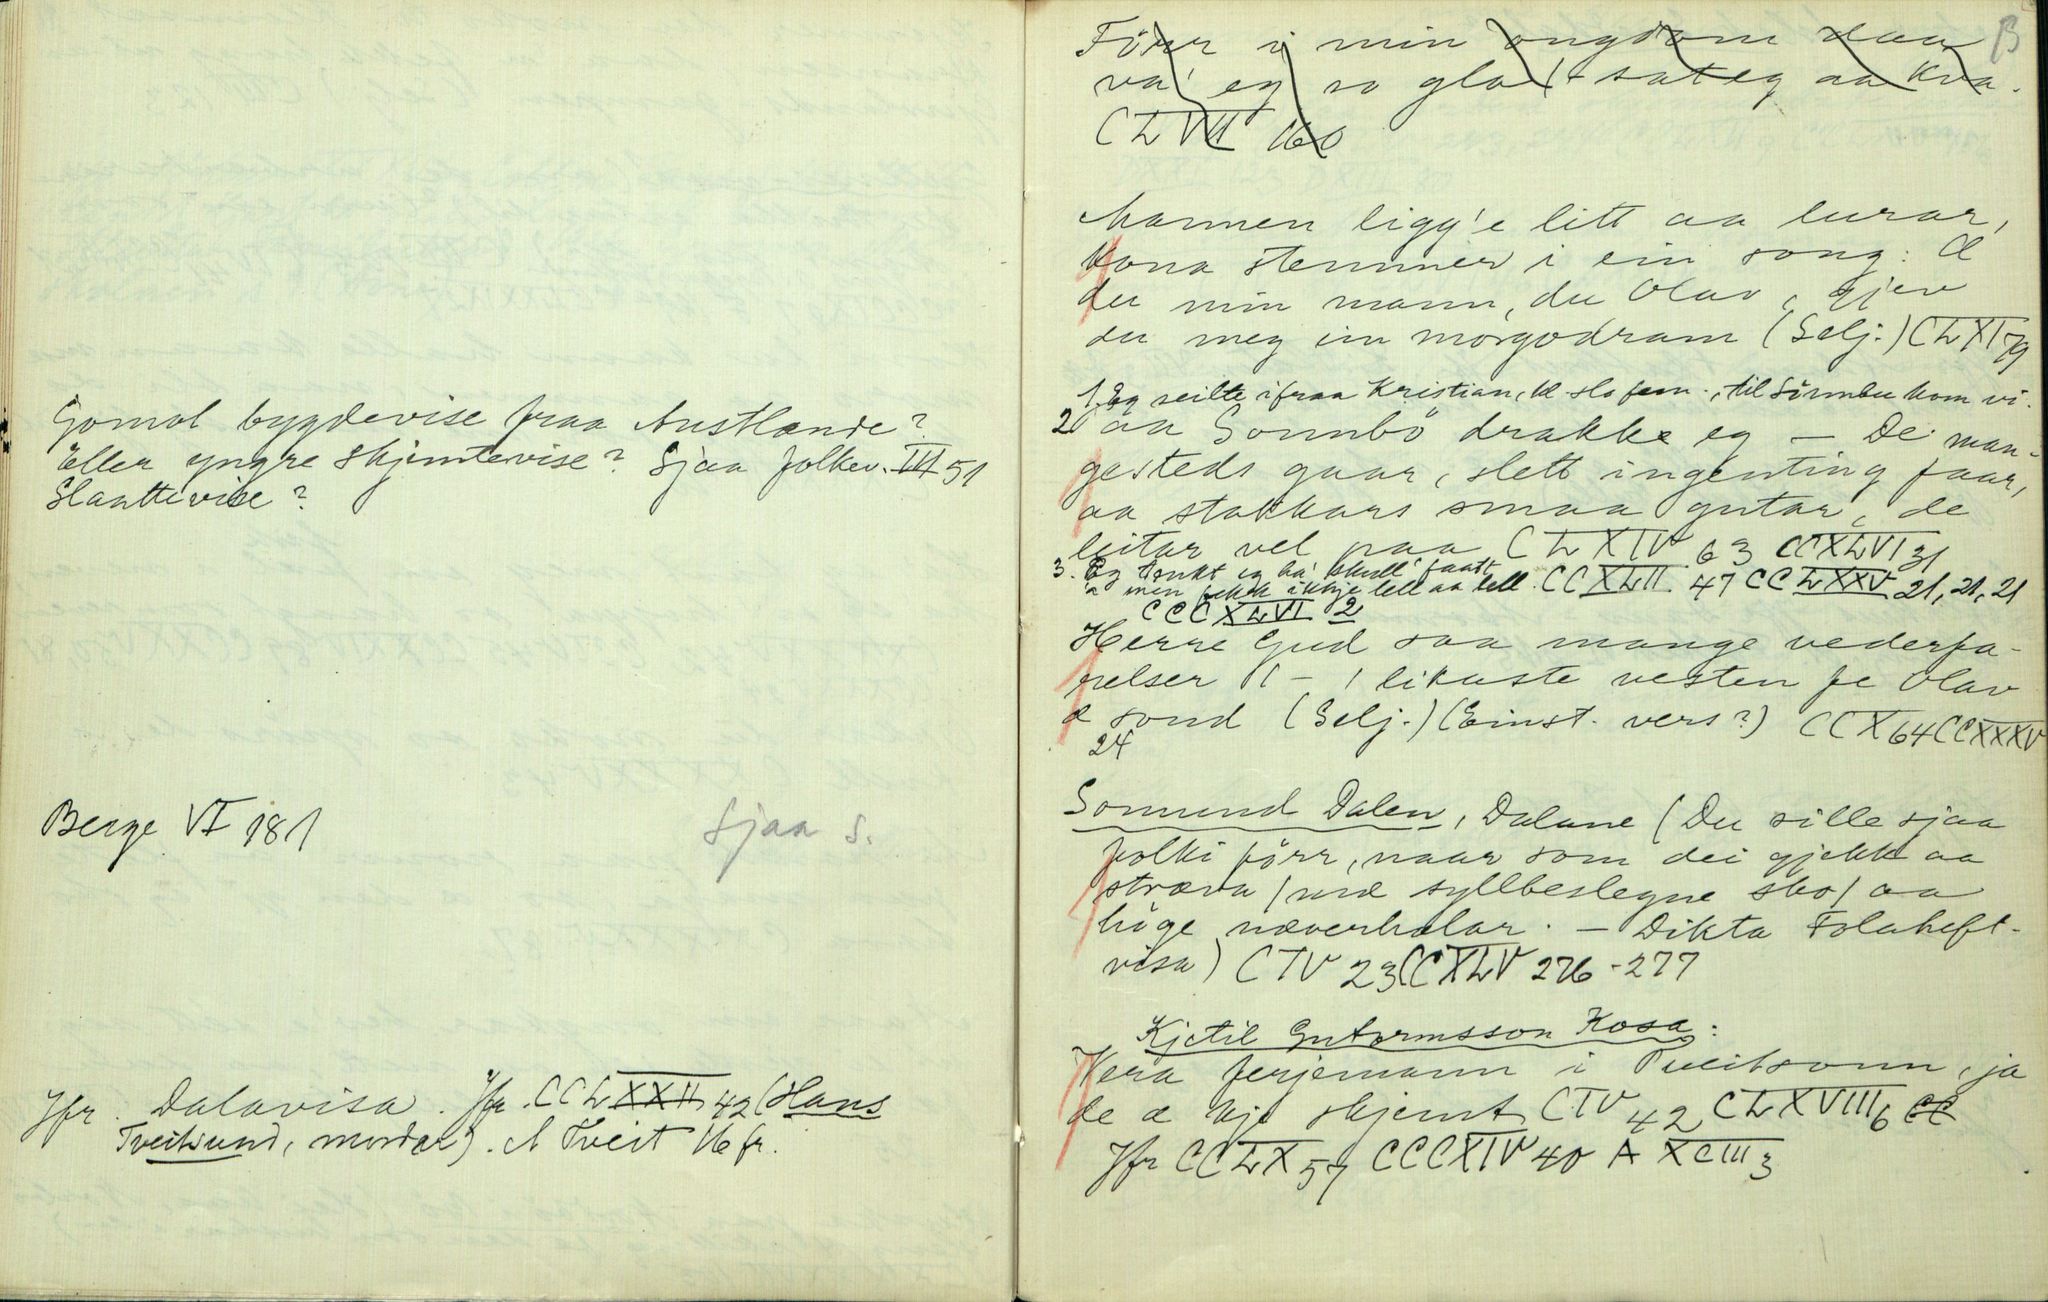 Gomol bygdevise fraa Austlande?
Eller yngre skjemtevise? Sjaa folkev. III 51
Slaattevise?
Berge VI 181
Sjaa s.
Jfr. Dalavisa. Jfr. CCLXXII 42 (Hans
Tveitsund, mordar). A Tveit 16 fr.
Förr i min ongdom daa
va' eg so glad sat eg aa kva.
CLVII 160
Mannen ligg'e litt aa lurar,
kona stemmer i ein song: Æ
du min mann, du Olav, gjev
du meg inn morgodram (Selj.) CLXI 79
1. Eg seilte ifraa Kristian, kl slo fem., til Sirmbu kom vi.
2 aa Sonnbö drakk eg — De man-
gesteds gaar, slett ingenting faar,
aa stakkars smaa gutar, de
leitar vel paa CLXIV 63 CCXLVI 31
3. Eg tenkt eg ha' skull' faatt
men fekk ikkje lell aa lell. CCXLII 47 CCLXXV 21, 21, 21
CCCXLVI 2
Herre Gud saa mange vederfa-
relser — likaste vesten fe Olav
æ sond (Selj.) (Einst. vers?) CCX 64 CCXXXV
24
Sonnund Dalen, Dalane (Du sille sjaa
folki förr, naar som dei gjekk aa
stræva / mæ syllbeslegne sko / aa
höge næverhalar. — Dikta Folaheft-
visa) CIV 23 CCXLV 276-277
Kjetil Gutormsson Kosa:
Vera ferjemann i Tveitsonn, ja
de æ kje skjemt CIV 42 CLXVIII 6 CC
Jfr CCLX 57 CCCXIV 40 A XCIII 3